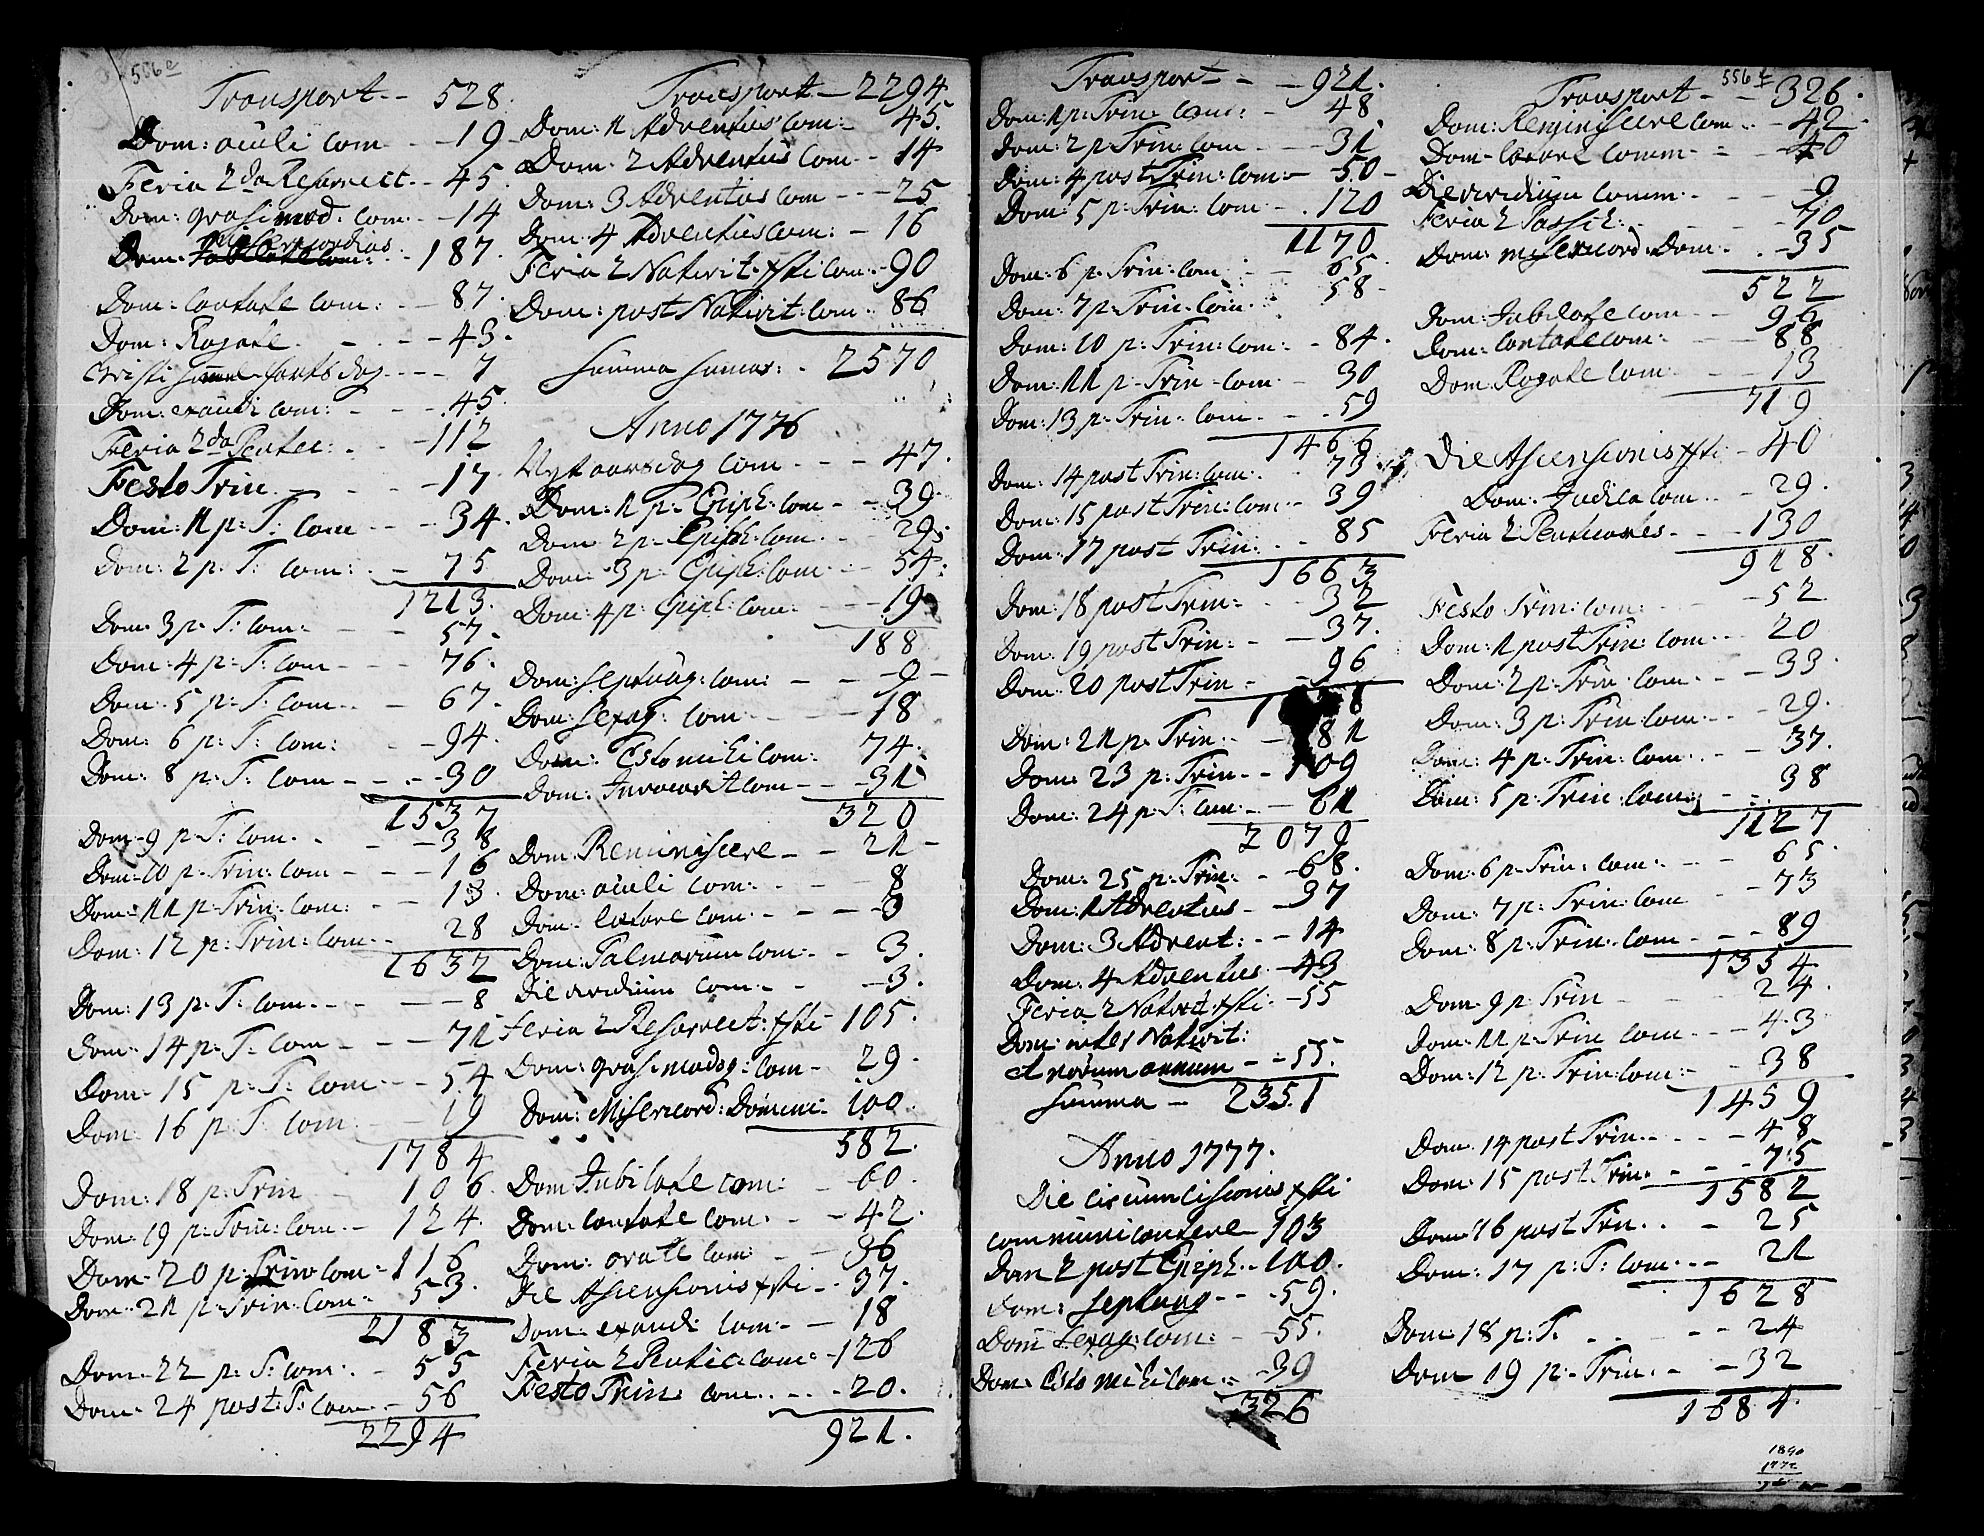 556 e
Transport - 528.
Dom: oculi Com - - 19
Feria 2da Resurrect. - 45
Dom: qvasimod: Com: - 14
Dom: Misericordias - 187.
Dom: Cantate Com: - - 87.
Dom: Rogate. - - - 43.
Christi himmelfartsdag - - - 7
Dom: exaudi Com: - - - 45.
Feria 2da Pentec: - - 112
Festo Trin. - - - 17.
Dom: 1 p: T: Com - - - 34.
Dom: 2 p: T: Com: - - 75
1213.
Dom: 3 p: T: Com: - - 57.
Dom: 4 p: T: Com - - - 76.
Dom: 5 p: T: Com - - - 67.
Dom: 6 p: T: Com: - - 94.
Dom: 8 p: T: Com - - - 30
1537
Dom: 9 p: T: Com. - - - 38
Dom: 10 p: Trin: Com - - - 16
Dom: 11 p: Trin: Com: - - 13.
Dom: 12 p: Trin: Com - - 28
1632
Dom: 13 p: T: Com - - - 8
Dom: 14 p: T: Com - - - 71
Dom: 15 p: T: Com - - 54
Dom: 16 p: T: Com: - - 19
1784
Dom: 18 p: Trin - 106.
Dom: 19 p: Trin: Com - 124.
Dom: 20 p: Trin: Com - 116
Dom: 21 p: Trin: Com - 53.
2183
Dom: 22 p: T: Com: - 55
Dom: 24 post: T: Com - 56
2294
Transport - 2294
Dom: 1 Adventus Com: - 45.
Dom: 2 Adventus Com - - 14
Dom: 3 Adventus Com - - - 25
Dom: 4 Adventus Com: - 16
Feria 2 Nativit: Xsti Com - 90
Dom: post Nativit: Com - 86
Summa Sumar: - 2570
Anno 1776
Nytaarsdag Com - - - 47.
Dom: 1 p: Epiph: Com - - 39
Dom: 2 p: Epiph: Com - - - 29:
Dom: 3 p: Epiph: Com - - - 54:
Dom: 4 p: Epiph: Com: - - - 19
188
Dom: Septuag: Com: - - - 9 -
Dom: Sexag: Com - - - 18
Dom: Estomihi Com: 74.
Dom: Invocavit Com - - - 31
320
Dom: Reminiscere - - 21 -
Dom: oculi Com: - - - 8
Dom: Letare Com: - - - 3
Dom: Palmarum Com: - - 3.
Die viridium Com - - - 3.
Feria 2 Resurrect: Xsti - 105.
Dom: qvasimodog: Com - 29.
Dom: Misericord: Domini - 100.
582.
Dom: Jubilate Com: - 60.
Dom: Cantate Com: - - 42.
Dom: orate Com: - - 36
Die Ascensionis Xsti - 37.
Dom: exaudi Com - - 18
Feria 2 Pentec: Com: - 126
Festo Trin: Com. - - - 20.
921.
Transport - - 921.
Dom: 1 p: Trin: Com: - 48
Dom: 2 p: Trin: Com - - 31
Dom: 4 post Trin: Com: - 50 -
Dom: 5 p: Trin: Com - 120
1170
Dom: 6 p: Trin: Com - - 65.
Dom: 7 p: Trin: Com - 58 -
Dom: 10 p: Trin: Com: - 84.
Dom: 11 p: Trin - Com - 30
Dom: 13 p: Trin: Com. - - 59
1466
Dom: 14 post Trin: Com. 73
Dom: 15 post Trin: Com - 39
Dom: 17 post Trin: - - 85
1663
Dom: 18 post Trin: - - 32
Dom: 19 post Trin: - - 37.
Dom: 20 post Trin - - 96
Dom: 21 p: Trin: - - 81
Dom: 23 p: Trin - - 109
Dom: 24 p: T: Com: - - 61
2079
Dom: 25 p: Trin: - - 68.
Dom: 1 Adventus - - 97
Dom: 3 Advent: - - 14
Dom: 4 Adventus - 43
Feria 2 Nativit: Xsti - 55
Dom: inter Nativit:
et novum annum - - 55.
Summa - 2351
Anno 1777.
Die Circumcisionis Xsti
communicantere 103
Dom 2 post Epiph. - 100.
Dom: Septuag - - - 59.
Dom Sexag: Com: - 55.
Dom: Esto mihi Com - - 39
326
556 f
Transport - - 326.
Dom: Reminiscere Com - - 42.
Dom: Letare Comm - - - 40
Die viridium Comm - - - 9
Feria 2 Pasch: - - - 70
Dom: misericord: Dom - - 35
522
Dom: Jubilate Com - - 96
Dom: Cantate Com: - - 88
Dom: Rogate Com - - - 13
719
Die Ascensionis Xsti - 40
Dom: Judica Com - - 29.
Feria 2 Pentecostes - - - 130
918.
Festo Trin: Com: - - - 52.
Dom: 1 post Trin: Com - - 20
Dom: 2 p: Trin: Com - - 33.
Dom: 3 p: Trin: Com - - 29.
Dom: 4 p: Trin: Com - - - 37.
Dom: 5 p: Trin: Com: - - 38
1127
Dom: 6 p: Trin: Com: - - 65.
Dom: 7 p: Trin: Com - 73
Dom: 8 p: Trin: Com - - - 89
1354
Dom: 9 p: Trin - - - 24.
Dom: 11 p: Trin Com - - - 43
Dom: 12 p: Trin: Com: - - 38
1459
Dom: 14 post Trin. - - - 48
Dom: 15 post Trin: - - - 75
1582
Dom: 16 post Trin. - - 25
Dom: 17 p: T: Com - - - 21
1628
Dom: 18 p: T. - - - 24
Dom 19 p: Trin. - - 32
1684.